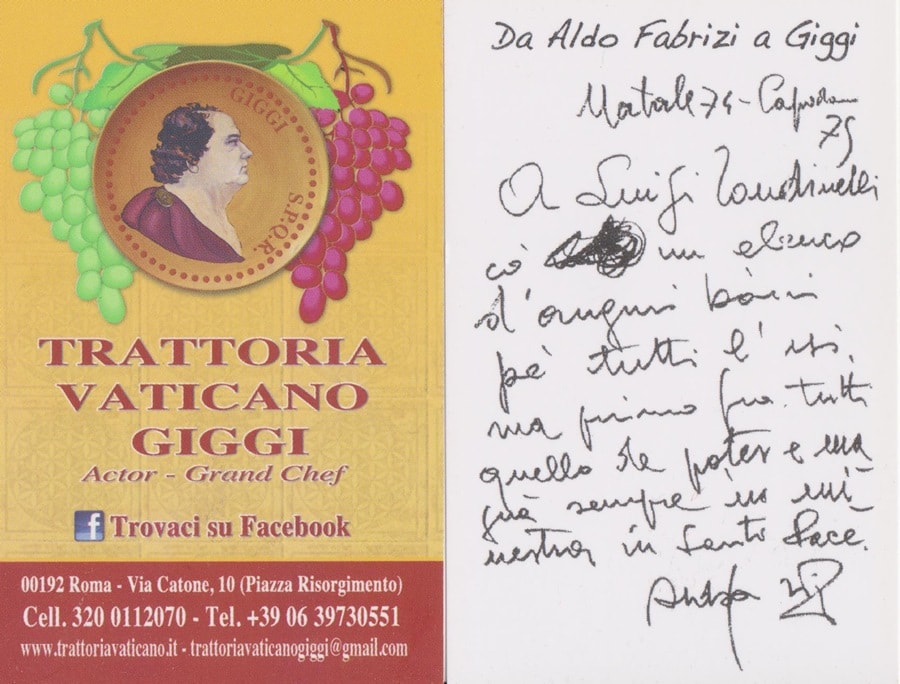 GIGGI
S.P.Q.R.
TRATTORIA
VATICANO
GIGGI
Actor - Grand Chef
f Trovaci su Facebook
00192 Roma - Via Catone, 10 (Piazza Risorgimento)
Cell. 320 0112070 - Tel. +39 06 39730551
www.trattoriavaticano.it - trattoriavaticanogiggi@gmail.com
Da Aldo Fabrizi a Giggi
Natale 74 -
75
A Luigi
cò un elenco
d'auguri
pè tutti l'usi,
ma primo fra tutti
quello de poter
sempre
in Santa Pace.